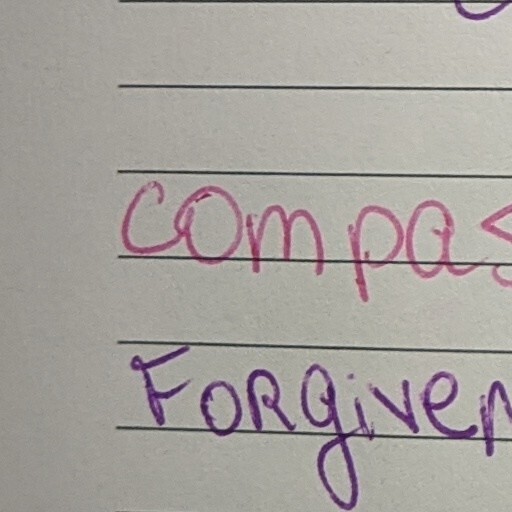 compas
Forgiven